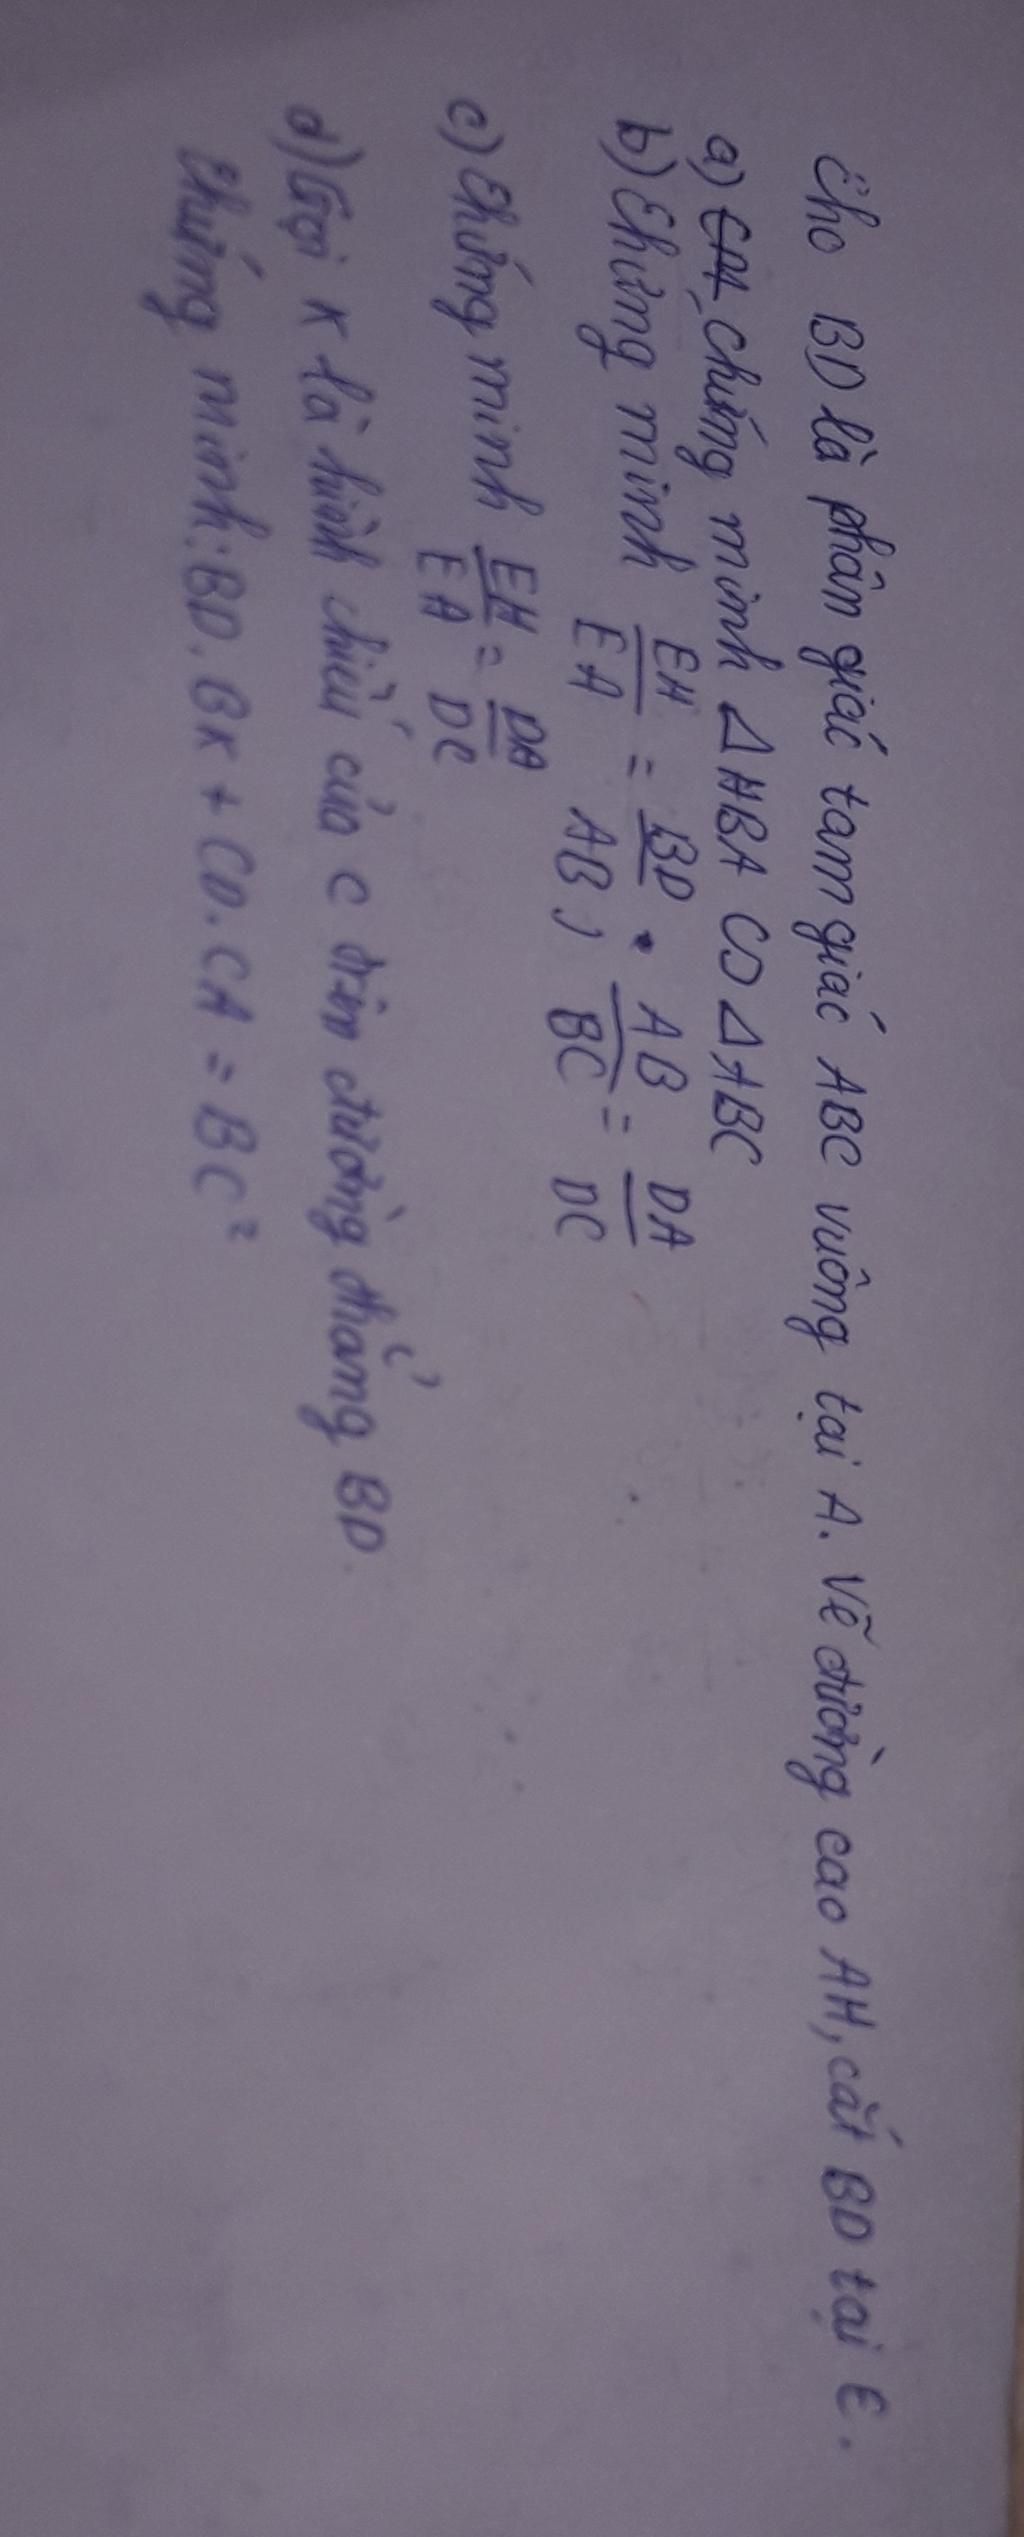 Cho BD là phân giác tam giác ABC vuông tại A. Vẽ đường cao AH, cắt BD tại E.
a) chứng minh Δ HBA ∽ Δ ABC
b) Chứng minh EH/EA = BD/AB ; AB/BC = DA/DC
c) Chứng minh EH/EA = DA/DC
d) Gọi K là hình chiếu của C trên đường thẳng BD
Chứng minh: BD. BK + CD. CA = BC²